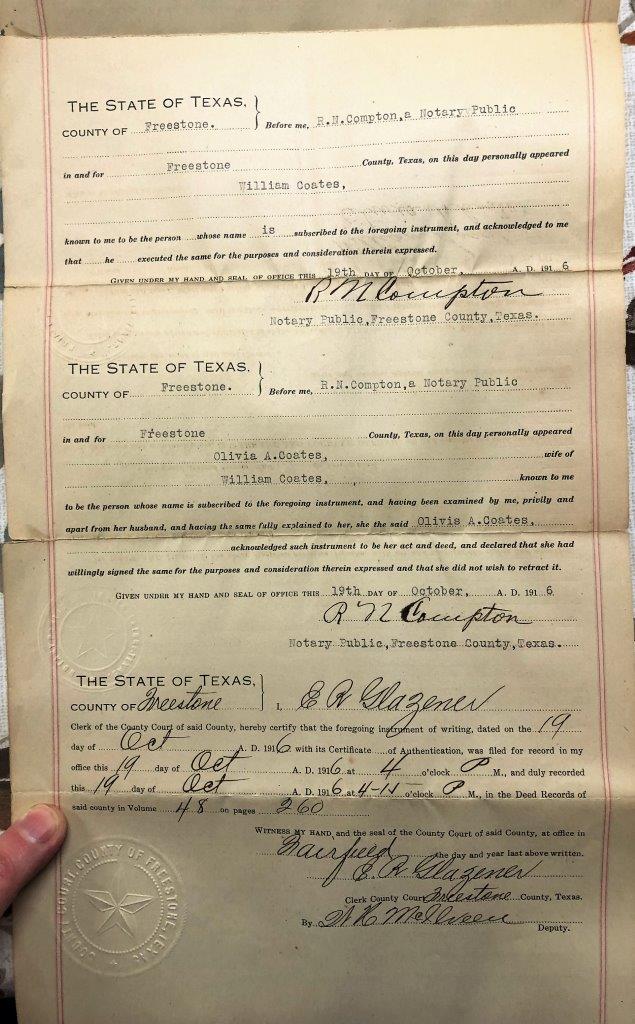 THE STATE OF TEXAS,
COUNTY OF Freestone. } Before me, R.N.Compton,a Notary Public
in and for Freestone County, Texas, on this day personally appeared
William Coates,
known to me to be the person whose name is subscribed to the foregoing instrument, and acknowledged to me
that he executed the same for the purposes and consideration therein expressed.
GIVEN UNDER MY HAND AND SEAL OF OFFICE THIS 19th DAY OF October, A. D. 191 6
R N Compton
Notary Public,Freestone County,Texas.
THE STATE OF TEXAS,
COUNTY OF Freestone. } Before me, R.N.Compton,a Notary Public
in and for Freestone County, Texas, on this day personally appeared
Olivia A.Coates, wife of
William Coates, known to me
to be the person whose name is subscribed to the foregoing instrument, and having been examined by me, privily and
apart from her husband, and having the same fully explained to her, she the said Olivis A.Coates,
acknowledged such instrument to be her act and deed, and declared that she had
willingly signed the same for the purposes and consideration therein expressed and that she did not wish to retract it.
GIVEN UNDER MY HAND AND SEAL OF OFFICE THIS 19th DAY OF October, A. D. 191 6
R N Compton
Notary Public,Freestone County,Texas.
THE STATE OF TEXAS,
COUNTY OF Freestone } I, E R Glazener
Clerk of the County Court of said County, hereby certify that the foregoing instrument of writing, dated on the 19
day of Oct A. D. 1916 with its Certificate of Authentication, was filed for record in my
office this 19 day of Oct A. D. 1916 at 4 o'clock P M., and duly recorded
this 19 day of Oct A. D. 1916 at 4-15 o'clock P M., in the Deed Records of
said county in Volume 48 on pages 260
WITNESS MY HAND and the seal of the County Court of said County, at office in
Fairfield the day and year last above written.
E. R Glazener
Clerk County Court Freestone County, Texas.
By McIlveen
Deputy.
COUNTY COURT, COUNTY OF FREESTONE, TEXAS